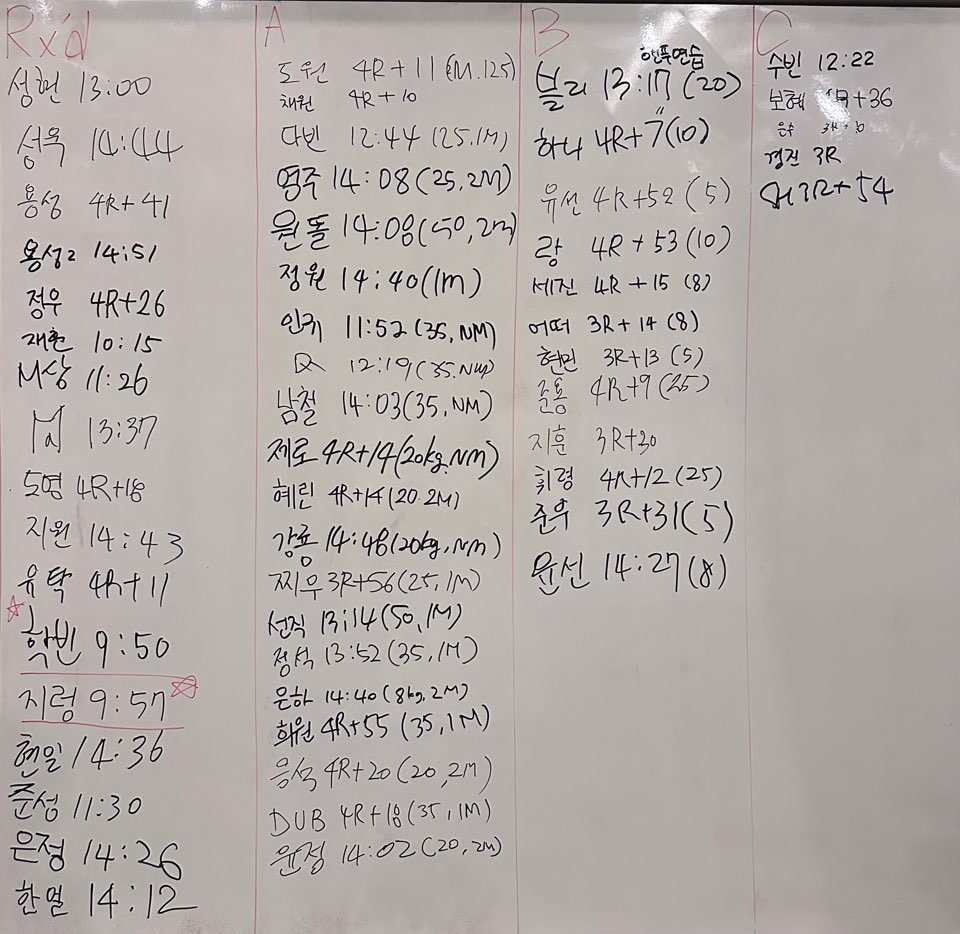 Rx'd
성현 13:00
성욱 14:44
용성 4R+41
용성2 14:51
정우 4R+26
재환 10:15
M상 11:26
Ma 13:37
도영 4R+18
지원 14:43
유탁 4R+11
학빈 9:50
지령 9:57
현일 14:36
준성 11:30
은정 14:26
한열 14:12
A
도원 4R+11 (M.125)
채원 4R+10
다빈 12:44 (25.1M)
영주 14:08 (25,2M)
원돌 14:08 (50,2M)
정원 14:40 (1M)
인귀 11:52 (35,NM)
12:19 (35.NM)
남철 14:03 (35,NM)
제로 4R+14 (20kg.NM)
혜린 4R+14 (20.2M)
강룡 14:48 (20kg,NM)
찌우 3R+56 (25,1M)
선직 13:14 (50,1M)
정석 13:52 (35,1M)
은하 14:40 (8kg,2M)
희원 4R+55 (35,1M)
응석 4R+20 (20,2M)
DUB 4R+18 (35,1M)
윤정 14:02 (20,2M)
B
핸푸연습
블리 13:17 (20)
하나 4R+7 (10)
유선 4R+52 (5)
랑 4R+53 (10)
세진 4R+15 (8)
어떠 3R+14 (8)
현민 3R+13 (5)
준용 4R+9 (25)
지훈 3R+30
휘령 4R+12 (25)
준우 3R+31 (5)
윤선 14:27 (8)
C
수빈 12:22
보혜 4R+36
은수
경진 3R
3R+54